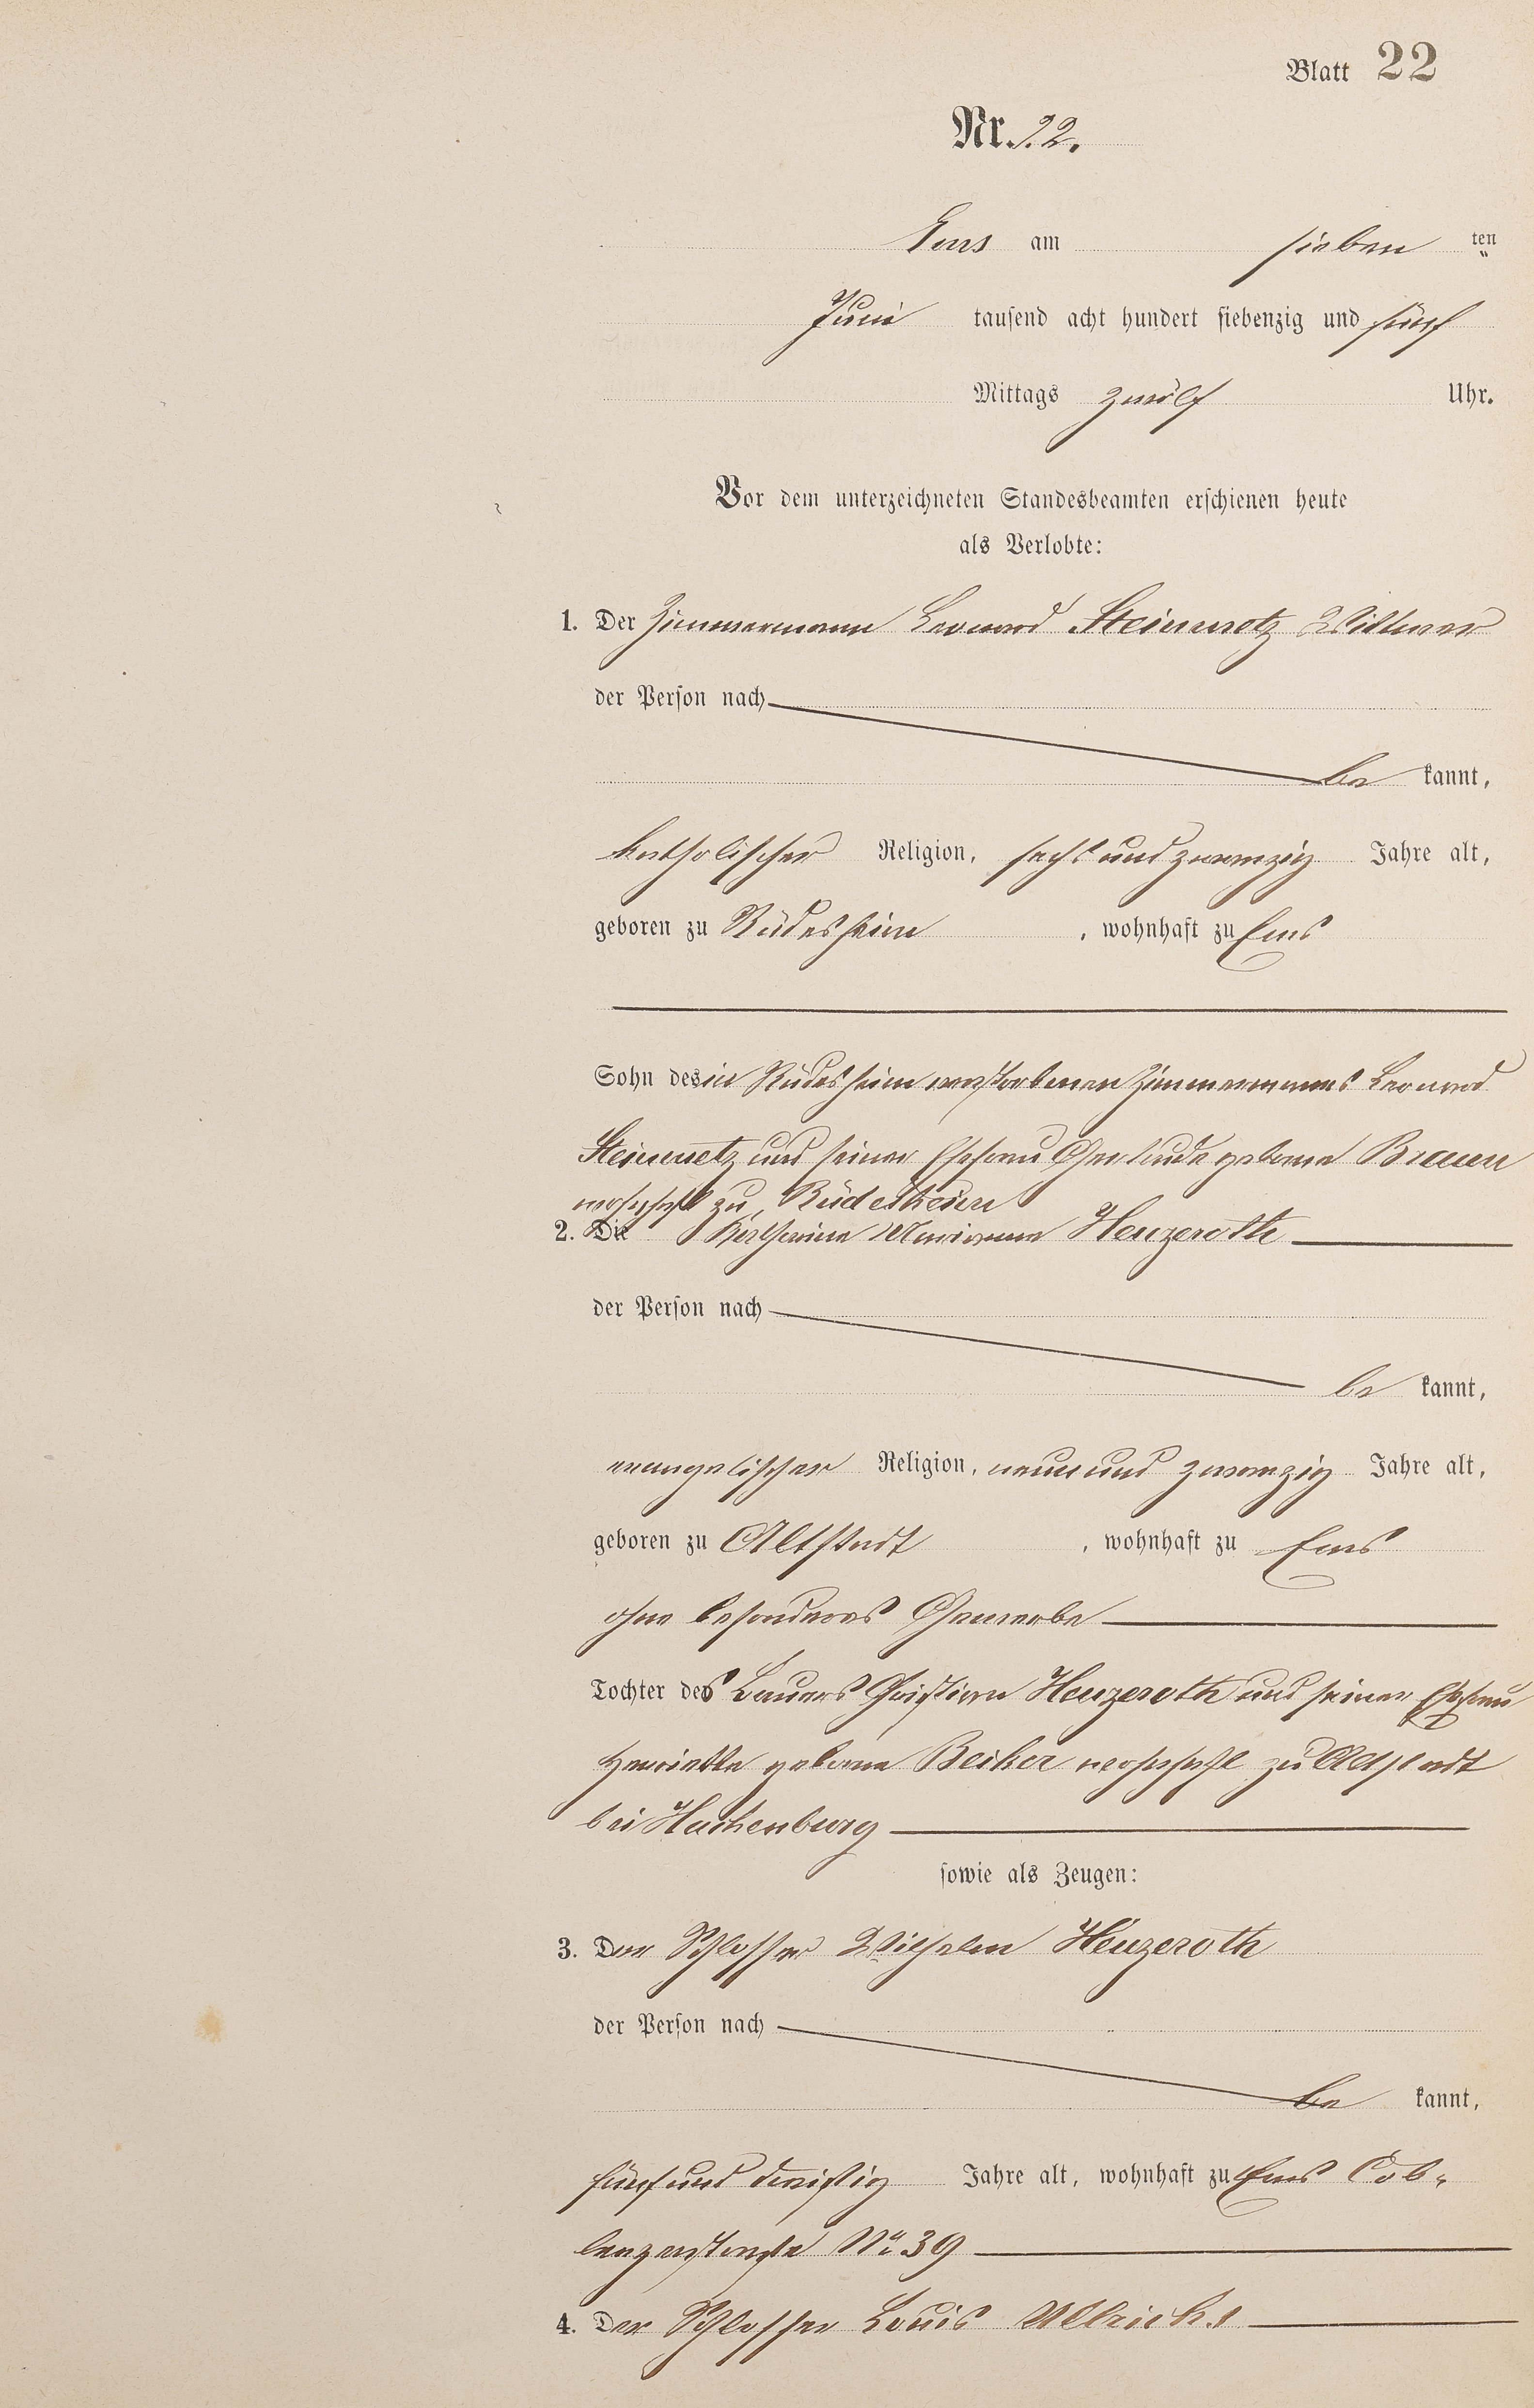 Blatt 22
Nr. 22.
Ems am sieben ten
Juni tausend acht hundert siebenzig und fünf
Mittags zwölf Uhr.
Vor dem unterzeichneten Standesbeamten erschienen heute
als Verlobte:
1. Der Zimmermann Leonard Steinmetz Wittwer
der Person nach
be kannt,
katholischer Religion, sechs und zwanzig Jahre alt,
geboren zu Rüdesheim, wohnhaft zu Ems
Sohn des in Rüdesheim verstorbenen Zimmermanns Leonard
Steinmetz und seiner Ehefrau Gertrude geborne Braun
wohnhaft zu Rüdesheim
2. Die Katharine Marianne Heuzeroth
der Person nach
be kannt,
evangelischer Religion, neun und zwanzig Jahre alt,
geboren zu Altstadt, wohnhaft zu Ems
ohne besonderes Gewerbe
Tochter des Bauers Christian Heuzeroth und seiner Ehefrau
Henriette geborne Becker wohnhaft zu Altstadt
bei Hachenburg
sowie als Zeugen:
3. Der Schlosser Wilhelm Heuzeroth
der Person nach
be kannt,
fünf und dreißig Jahre alt, wohnhaft zu Ems Cob-
lenzerstraße No 39
4. Der Schlosser Louis Ullrich